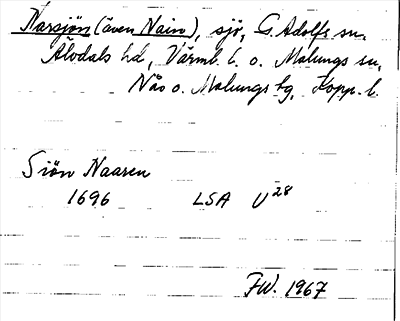 Narsjön (även Nain), sjö, G. Adolfs sn,
Älvdals hd, Värml. l. o. Malungs sn,
Nås o. Malungs tg, Kopp. l.
Siön Naaren
1696 LSA U28
FW. 1967